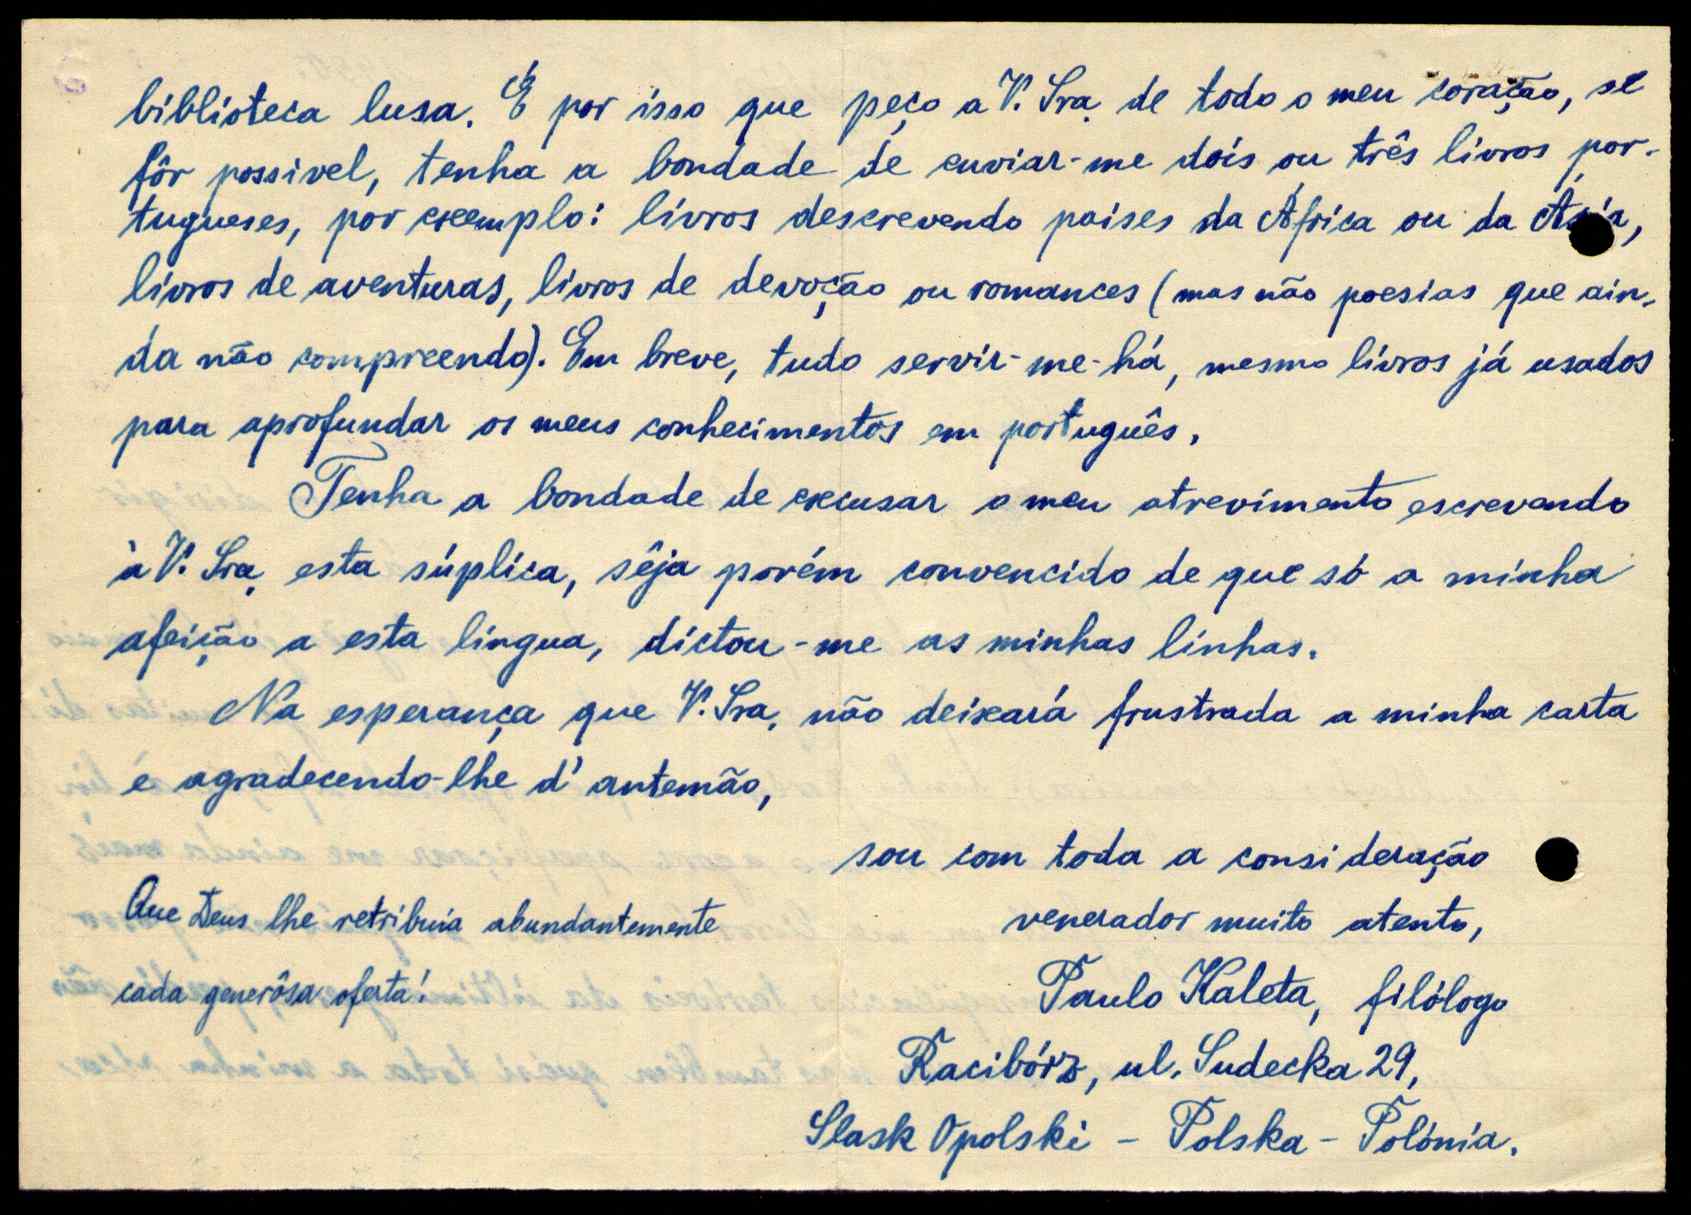 biblioteca lusa. É por isso que peço a V. Sra. de todo o meu coração, se
fôr possivel, tenha a bondade de enviar-me dois ou três livros por-
tugueses, por exemplo: livros descrevendo paises da África ou da Ásia,
livros de aventuras, livros de devoção ou romances (mas não poesias que ain-
da não compreendo). Em breve, tudo servir-me-há, mesmo livros já usados
para aprofundar os meus conhecimentos em português.
Tenha a bondade de excusar o meu atrevimento escrevendo
à V. Sra. esta súplica, sêja porém convencido de que só a minha
afeição a esta lingua, dictou-me as minhas linhas.
Na esperança que V. Sra. não deixará frustrada a minha carta
e agradecendo-lhe d'antemão,
sou com toda a consideração
venerador muito atento,
Paulo Kaleta, filólogo
Racibórz, ul. Sudecka 29,
Slask Opolski - Polska - Polónia.
Que Deus lhe retribuia abundantemente
cada generôsa oferta!